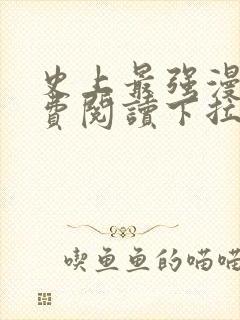 史上最强漫
費閱讀下拉
喫鱼鱼的喵喵